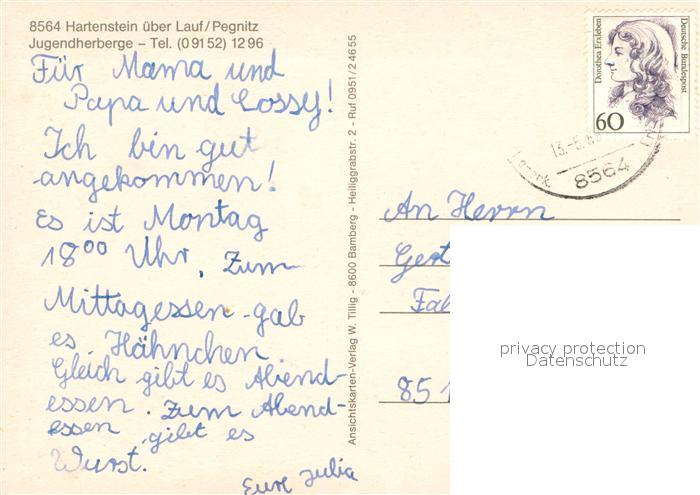 8564 Hartenstein über Lauf/Pegnitz
Jugendherberge – Tel. (0 91 52) 12 96
Für Mama und
Papa und Cossy!
Ich bin gut
angekommen!
Es ist Montag
18⁰⁰ Uhr, Zum
Mittagessen gab
es Hähnchen
Gleich gibt es Abend-
essen. Zum Abend-
essen gibt es
Wurst.
Eure Julia
Ansichtskarten-Verlag W. Tillig - 8600 Bamberg - Heiliggrabstr. 2 - Ruf 0951/2 46 55
Dorothea Erxleben
Deutsche Bundespost
60
8564
An Herrn
Gert
Fab
85
privacy protection
Datenschutz